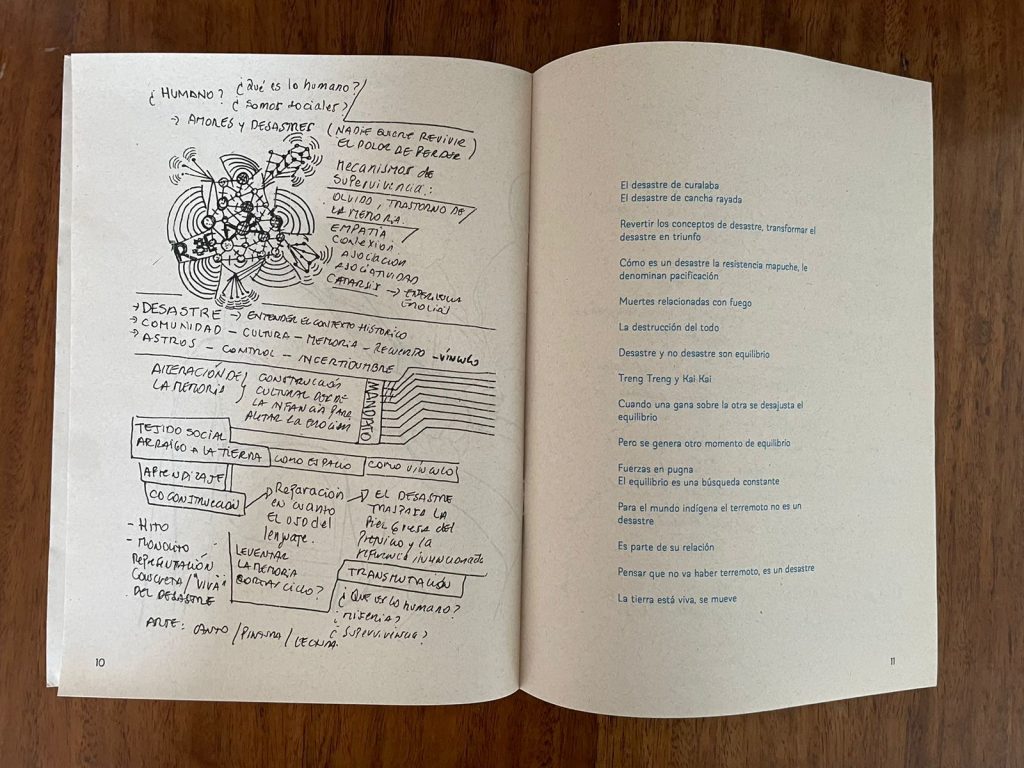 ¿HUMANO? ¿Qué es lo humano?
¿Somos sociales?
→ AMORES y DESASTRES
(NADIE QUIERE REVIVIR
EL DOLOR DE PERDER)
Mecanismos de
Supervivencia:
OLVIDO, TRASTORNO DE
LA MEMORIA.
EMPATÍA
CONEXIÓN
ASOCIACIÓN
ASOCIATIVIDAD
CATARSIS →
→ DESASTRE → ENTENDER EL CONTEXTO HISTÓRICO
→ COMUNIDAD – CULTURA – MEMORIA – RECUERDO – VÍNCULO
→ ASTROS – CONTROL – INCERTIDUMBRE
ALTERACIÓN DE
LA MEMORIA
CONSTRUCCIÓN
CULTURAL DESDE
LA INFANCIA PARA
LA EMOCIÓN
MANDATO
TEJIDO SOCIAL
ARRAIGO A LA TIERRA COMO ESPACIO COMO VÍNCULO
APRENDIZAJE
CO CONSTRUCCIÓN
Reparación
en cuanto
EL USO del
lenguaje.
→ EL DESASTRE
TRASPASA LA
PIEL
y la
- HITO
- MONOLITO
REPRESENTACIÓN
CONCRETA/"VIVA"
DEL DESASTRE
LEVENTAR
LA MEMORIA
CORTAR CICLO?
TRANSMUTACIÓN
¿QUE ES lo humano?
¿MISERIA?
¿Supervivencia?
ARTE: CANTO/PINTURA/LECTURA.
10
El desastre de curalaba
El desastre de cancha rayada
Revertir los conceptos de desastre, transformar el
desastre en triunfo
Cómo es un desastre la resistencia mapuche, le
denominan pacificación
Muertes relacionadas con fuego
La destrucción del todo
Desastre y no desastre son equilibrio
Treng Treng y Kai Kai
Cuando una gana sobre la otra se desajusta el
equilibrio
Pero se genera otro momento de equilibrio
Fuerzas en pugna
El equilibrio es una búsqueda constante
Para el mundo indígena el terremoto no es un
desastre
Es parte de su relación
Pensar que no va haber terremoto, es un desastre
La tierra está viva, se mueve
11